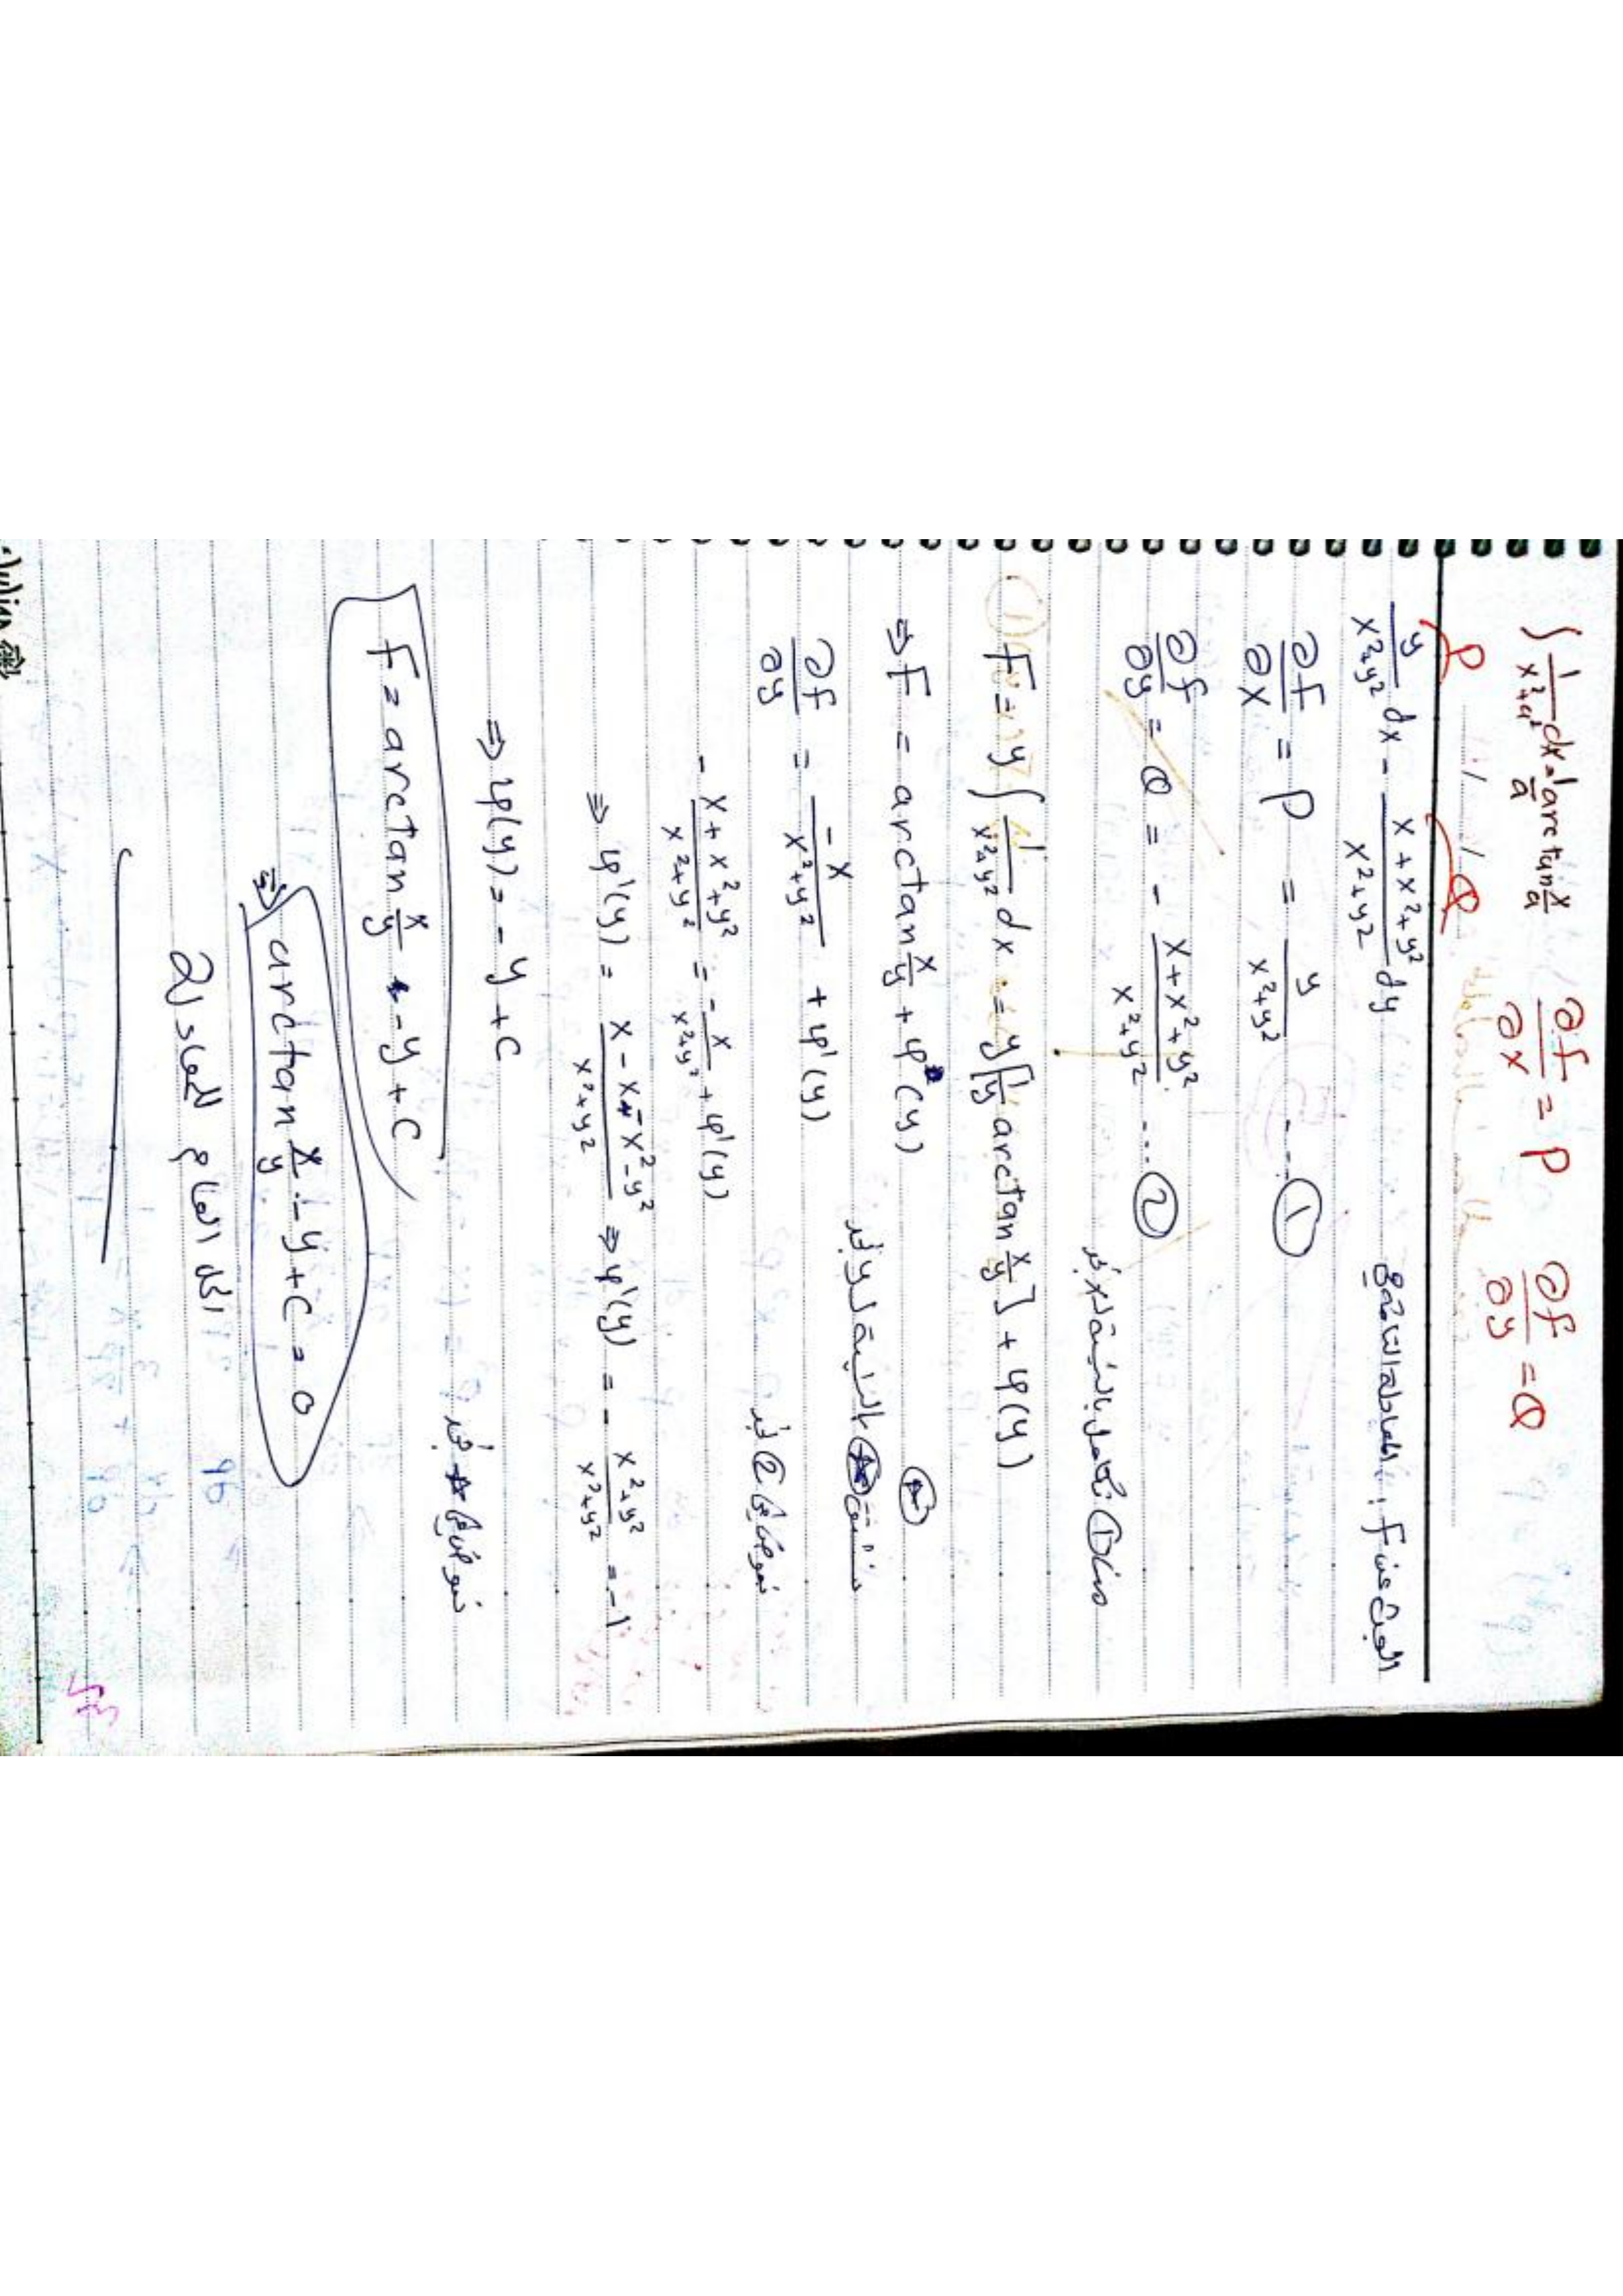 ∫ 1/(x²+a²) dx = 1/a arc tan x/a   ∂f/∂x = P   ∂f/∂y = Q
P   Q
y/(x²+y²) dx - (x + x² + y²)/(x²+y²) dy   البحث عن F :
∂f/∂x = P = y/(x²+y²) .... ①
∂f/∂y = Q = - (x + x² + y²)/(x²+y²) ... ②
من ① نكامل بالنسبة لـ x نجد
F = y ∫ 1/(x²+y²) dx = y [1/y arctan x/y] + φ(y)
⇒ F = arctan x/y + φ(y)
نشتق بالنسبة لـ y نجد
∂f/∂y = -x/(x²+y²) + φ'(y)
نعوض في ② نجد
- (x + x² + y²)/(x²+y²) = - x/(x²+y²) + φ'(y)
⇒ φ'(y) = (x - x - x² - y²)/(x²+y²) ⇒ φ'(y) = - (x²+y²)/(x²+y²) = -1
⇒ φ(y) = - y + C
نعوض في * نجد
F = arctan x/y - y + C
⇒ arctan x/y - y + C = 0
الحل العام للمعادلة